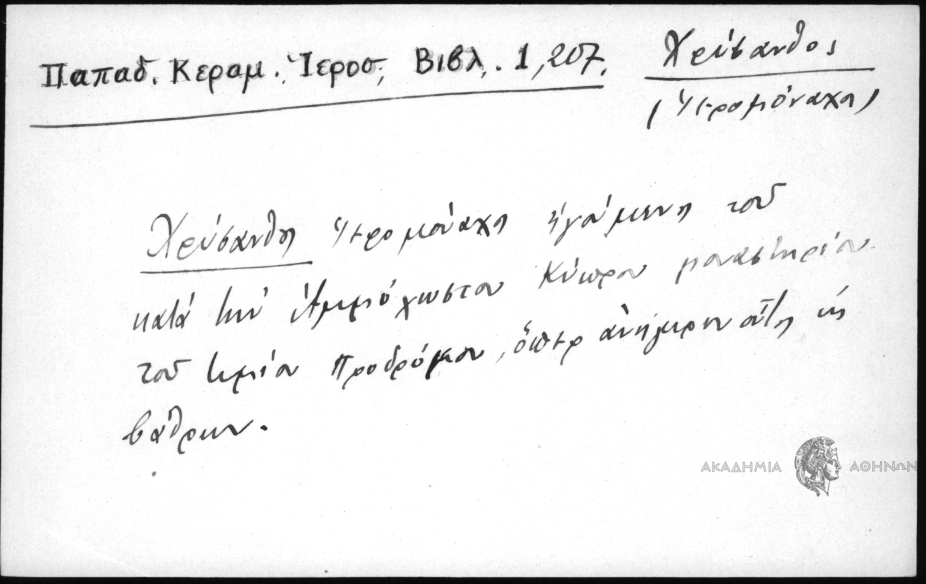 Παπαδ. Κεραμ. Ἱεροσ. Βιβλ. 1, 207.
Χρύσανθος
(Ἱερομόναχος)
Χρύσανθος ἱερομόναχος ἡγούμενος τοῦ
κατὰ τὴν Ἀμμόχωστον Κύπρου μοναστηρίου
τοῦ τιμίου Προδρόμου, ὅπερ ἀνήγειρεν οὗτος ἐκ
βάθρων.
ΑΚΑΔΗΜΙΑ ΑΘΗΝΩΝ